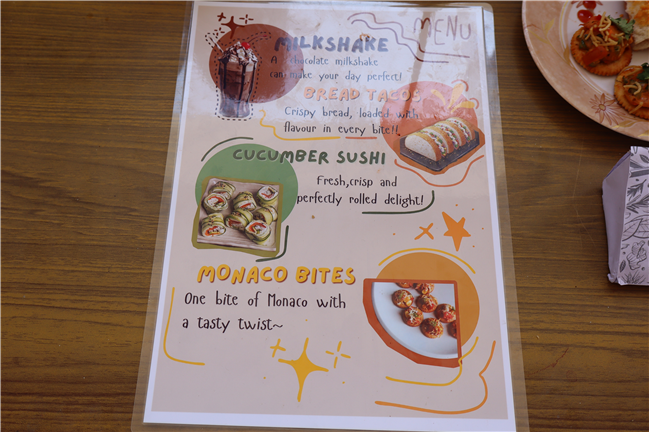 MENU
MILKSHAKE
A chocolate milkshake
can make your day perfect!
BREAD TACOS
Crispy bread, loaded with
flavour in every bite!!
CUCUMBER SUSHI
Fresh,crisp and
perfectly rolled delight!
MONACO BITES
One bite of Monaco with
a tasty twist~